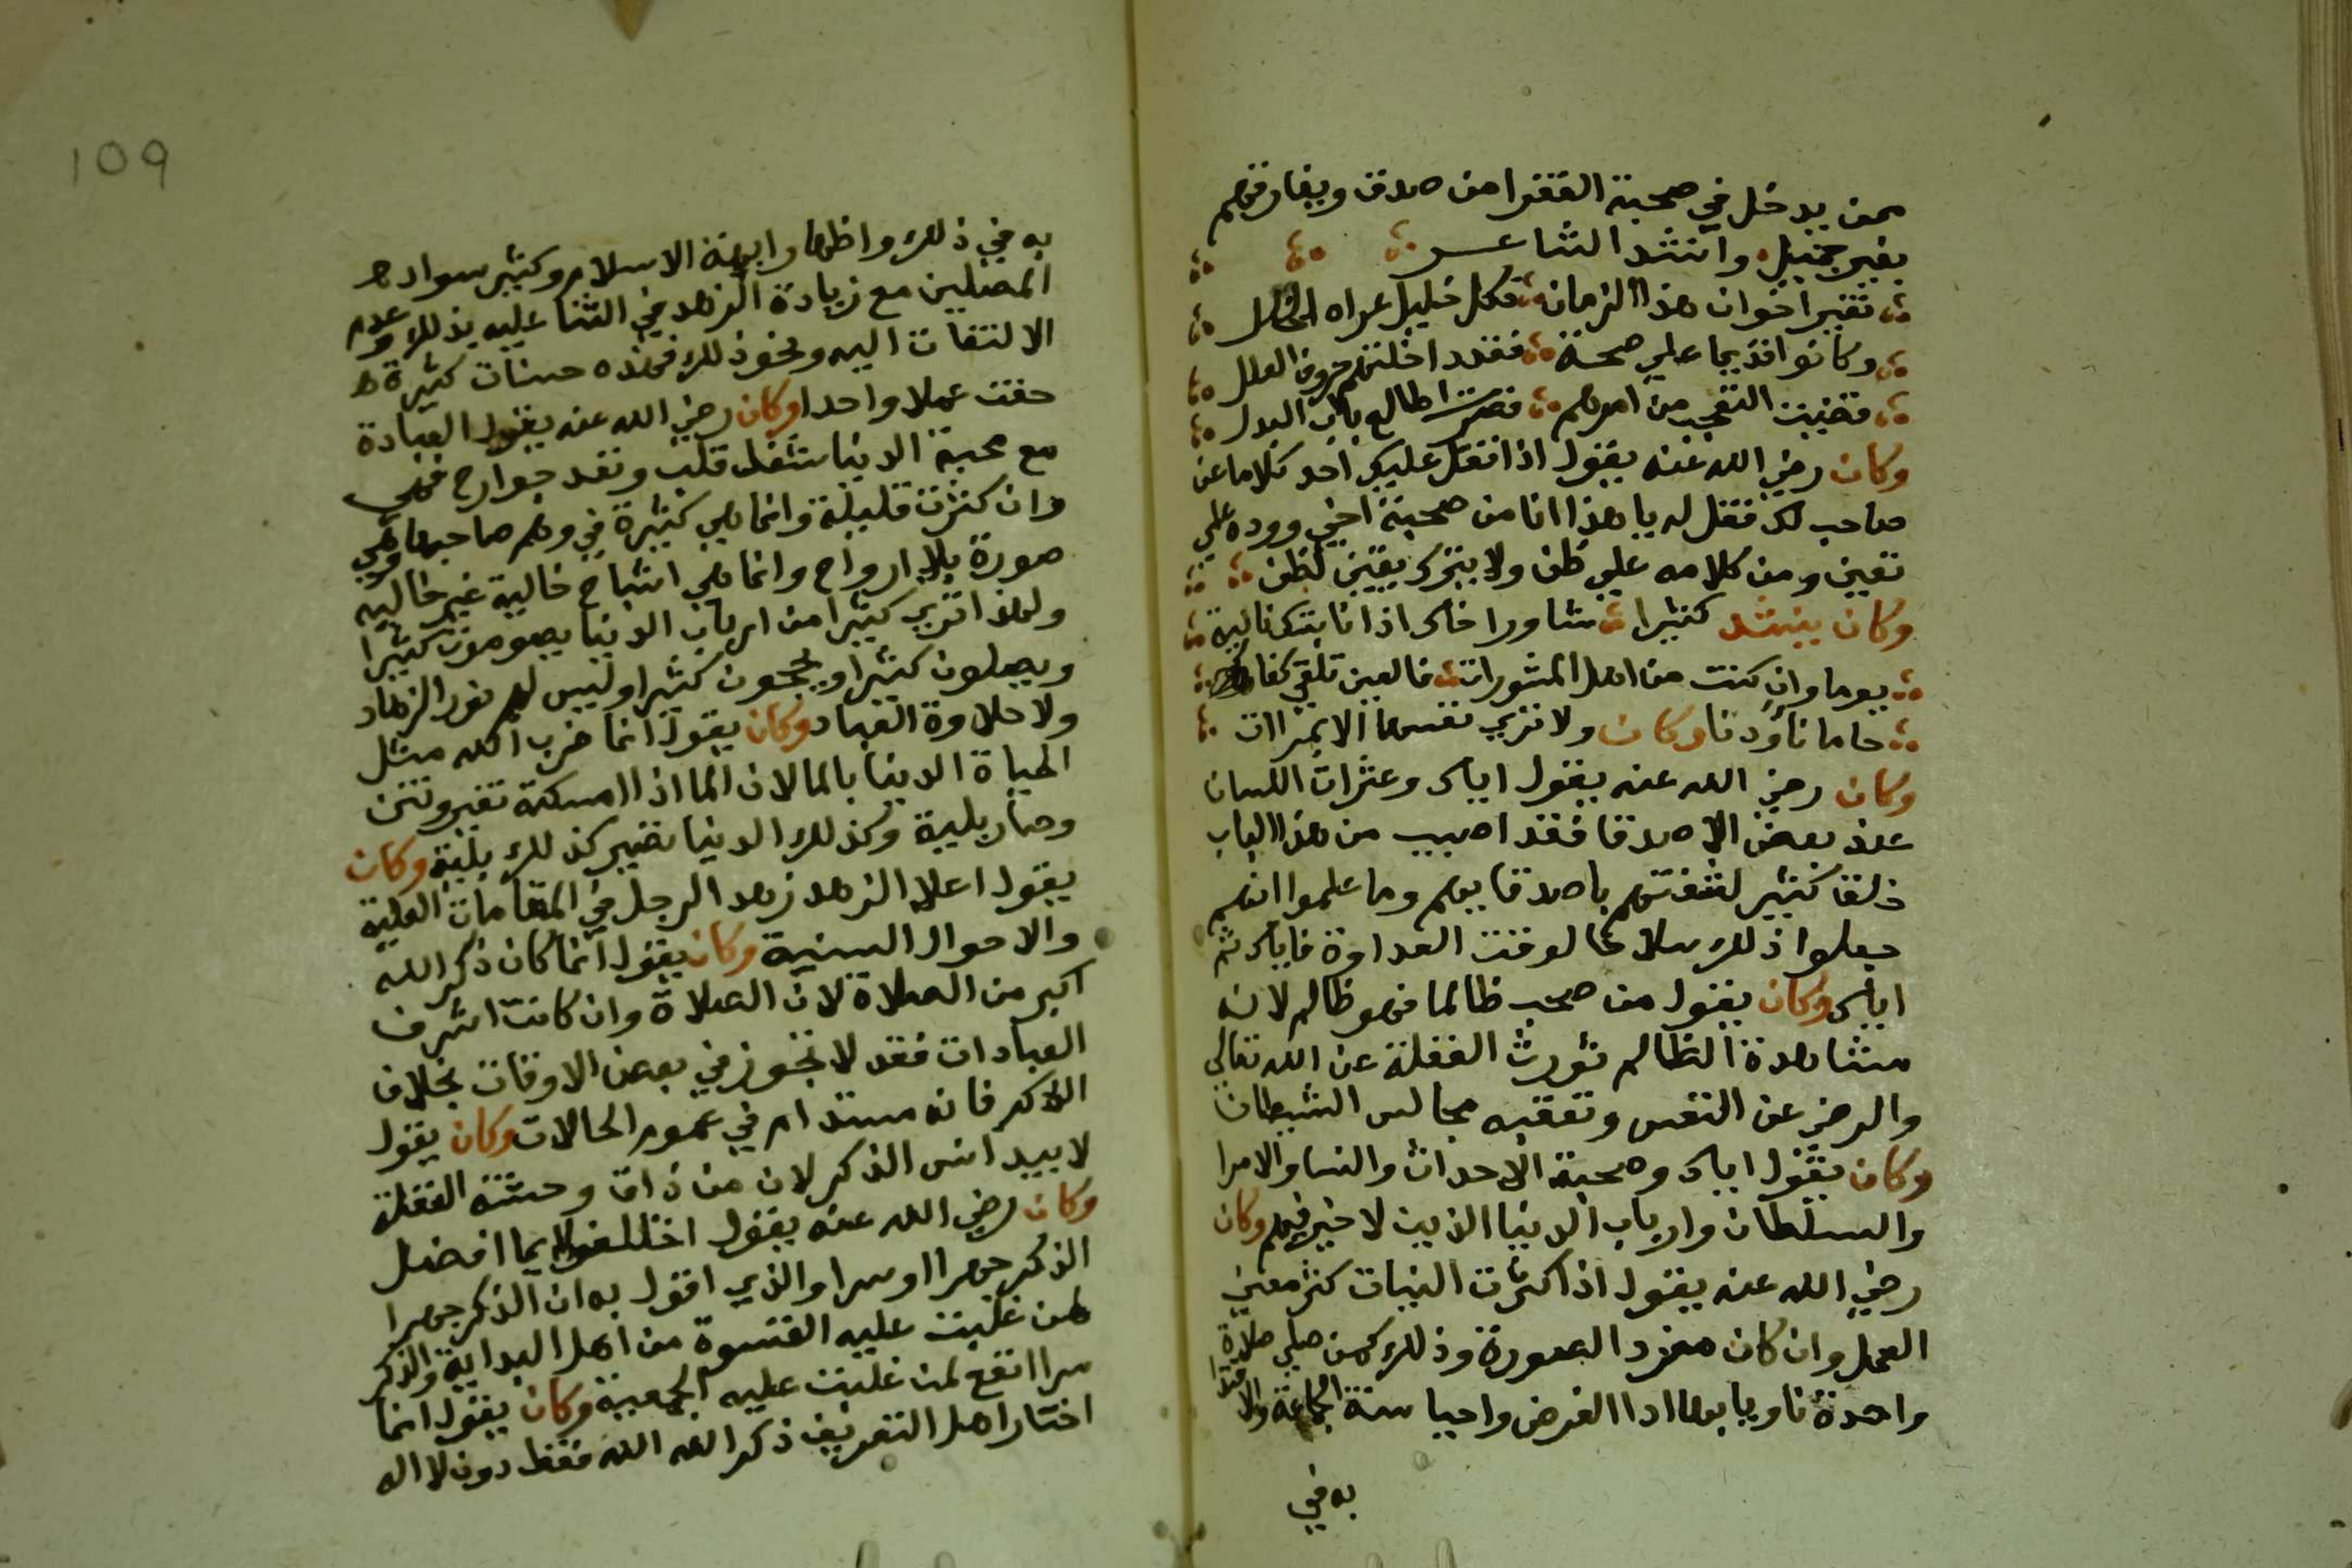 ممن يدخل في صحبة الفقرا من صدق ويفارقهم
بغير جميل وانشد الشاعر
تغير اخوان هذا الزمان فكل خليل عراه الخلل
وكانوا قديما علي صحة فقد داخلتهم حروف العلل
قضيت التعجب من امرهم فصرت اطالع باب البدل
وكان رضي الله عنه يقول اذا نقل عليك احد كلاما عن
صاحب لك فقل له يا هذا انا من صحبة اخي ووده علي
يقين ومن كلامه علي ظن ولا يترك يقين لظن
وكان ينشد كثيرا شاور اخاك اذا نابتك نايبة
يوما وان كنت من اهل المشورات فالعين تلقي كفاحا
ما نأ ودنا وكان ولا تري نفسها الا بمرات
وكان رضي الله عنه يقول اياك وعثرات اللسان
عند بعض الاصدقا فقد اصيب من هذا الباب
خلقا كثير لثقتهم باصدقايهم وما علموا انهم
جعلوا ذلك سلاحا لوقت العداوة فاياك ثم
اياك وكان يقول من صحب ظالما فهو ظالم لان
مشاهدة الظالم تورث الغفلة عن الله تعالي
والرضي عن النفس وتعقبه مجالس الشيطان
وكان يقول اياك وصحبة الاحداث والنسا والامرا
والسلطان وارباب الدنيا الذين لا خير فيهم وكان
رضي الله عنه يقول اذا كثرت النيات كثر معني
العمل وان كان مفرد الصورة وذلك كمن صلي صلاة
واحدة ناويا بها ادا الفرض واحيا سنة الجماعة والاقتدا
به في
109
به في ذلك واظهار ابهة الاسلام وكثير سواد
المصلين مع زيادة الزهد في الثنا عليه بذلك وعدم
الالتفات اليه ونحو ذلك فهذه حسنات كثيرة
حفت عملا واحدا وكان رضي الله عنه يقول العبادة
مع محبة الدنيا شغل قلب وتعب جوارح فهي
وان كثرت قليلة وانما هي كثيرة في وهم صاحبها وهي
صورة بلا ارواح وانما هي اشباح خالية غير خاليه
ولهذا تري كثيرا من ارباب الدنيا يصومون كثيرا
ويصلون كثيرا ويحجون كثيرا وليس لهم نور الزهاد
ولا حلاوة العباد وكان يقول انما ضرب الله مثل
الحياة الدنيا بالما لان الما اذا امسكته تغير ونتن
وصار بلية وكذلك الدنيا تصير كذلك بلية وكان
يقول اعلا الزهد زهد الرجل في المقامات العلية
والاحوال السنية وكان يقول انما كان ذكر الله
اكبر من الصلاة لان الصلاة وان كانت اشرف
العبادات فقد لا تجوز في بعض الاوقات بخلاف
الذكر فانه مستدام في عموم الحالات وكان يقول
لا بيد انس الذكر لان من ذاق وحشة الغفلة
وكان رضي الله عنه يقول اختلفوا ايما افضل
الذكر جهرا او سرا والذي اقول به ان الذكر جهرا
لمن غلبت عليه القسوة من اهل البداية والذكر
سرا انفع لمن غلبت عليه الجمعية وكان يقول انما
اختار اهل التعريف ذكر الله الله فقط دون لا اله